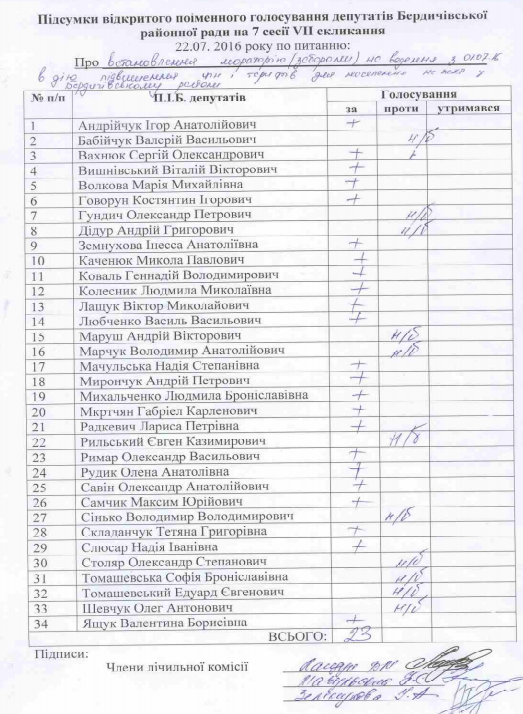 Підсумки відкритого поіменного голосування депутатів Бердичівської
районної ради на 7 сесії VII скликання
22.07. 2016 року по питанню:
Про встановлення мораторію (заборони) на ведення з 0107.16
в дію підвищення цін і тарифів для населення
Бердичівському районі
№ п/п П.І.Б. депутатів Голосування
за проти утримався
1 Андрійчук Ігор Анатолійович +
2 Бабійчук Валерій Васильович н/б
3 Вахнюк Сергій Олександрович +
4 Вишнівський Віталій Вікторович +
5 Волкова Марія Михайлівна +
6 Говорун Костянтин Ігорович +
7 Гундич Олександр Петрович н/б
8 Дідур Андрій Григорович н/б
9 Земнухова Інесса Анатоліївна +
10 Каченюк Микола Павлович +
11 Коваль Геннадій Володимирович +
12 Колесник Людмила Миколаївна +
13 Лащук Віктор Миколайович +
14 Любченко Василь Васильович +
15 Маруш Андрій Вікторович н/б
16 Марчук Володимир Анатолійович н/б
17 Мачульська Надія Степанівна +
18 Мирончук Андрій Петрович +
19 Михальченко Людмила Броніславівна +
20 Мкртчян Габріел Карленович +
21 Радкевич Лариса Петрівна +
22 Рильський Євген Казимирович н/б
23 Римар Олександр Васильович +
24 Рудик Олена Анатолівна +
25 Савін Олександр Анатолійович +
26 Самчик Максим Юрійович +
27 Сінько Володимир Володимирович н/б
28 Складанчук Тетяна Григорівна +
29 Слюсар Надія Іванівна +
30 Столяр Олександр Степанович н/б
31 Томашевська Софія Броніславівна н/б
32 Томашевський Едуард Євгенович н/б
33 Шевчук Олег Антонович н/б
34 Ящук Валентина Борисівна +
ВСЬОГО: 23
Підписи:
Члени лічильної комісії